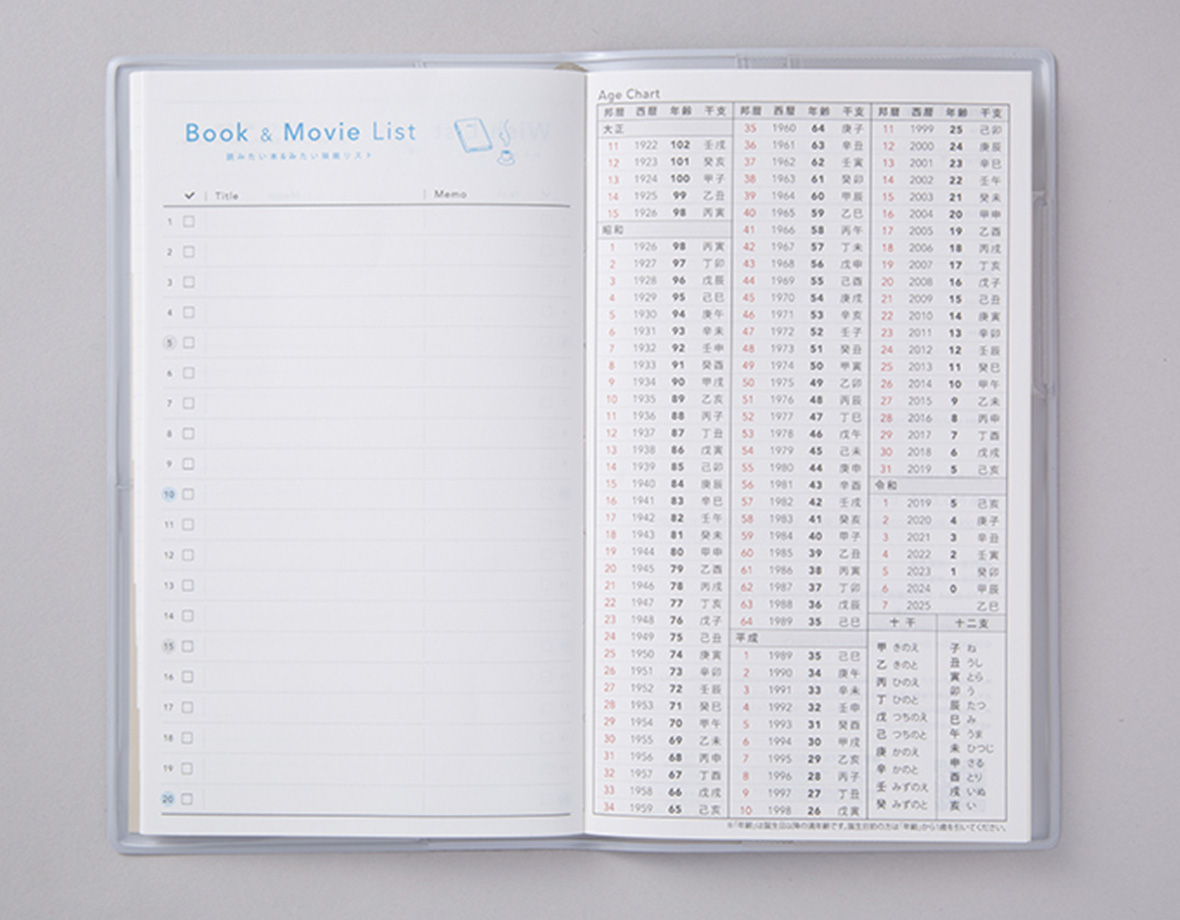 Book & Movie List
読みたい本&みたい映画リスト
✓ Title Memo
1
2
3
4
5
6
7
8
9
10
11
12
13
14
15
16
17
18
19
20
Age Chart
邦暦 西暦 年齢 干支
大正
11 1922 102 壬戌
12 1923 101 癸亥
13 1924 100 甲子
14 1925 99 乙丑
15 1926 98 丙寅
昭和
1 1926 98 丙寅
2 1927 97 丁卯
3 1928 96 戊辰
4 1929 95 己巳
5 1930 94 庚午
6 1931 93 辛未
7 1932 92 壬申
8 1933 91 癸酉
9 1934 90 甲戌
10 1935 89 乙亥
11 1936 88 丙子
12 1937 87 丁丑
13 1938 86 戊寅
14 1939 85 己卯
15 1940 84 庚辰
16 1941 83 辛巳
17 1942 82 壬午
18 1943 81 癸未
19 1944 80 甲申
20 1945 79 乙酉
21 1946 78 丙戌
22 1947 77 丁亥
23 1948 76 戊子
24 1949 75 己丑
25 1950 74 庚寅
26 1951 73 辛卯
27 1952 72 壬辰
28 1953 71 癸巳
29 1954 70 甲午
30 1955 69 乙未
31 1956 68 丙申
32 1957 67 丁酉
33 1958 66 戊戌
34 1959 65 己亥
邦暦 西暦 年齢 干支
35 1960 64 庚子
36 1961 63 辛丑
37 1962 62 壬寅
38 1963 61 癸卯
39 1964 60 甲辰
40 1965 59 乙巳
41 1966 58 丙午
42 1967 57 丁未
43 1968 56 戊申
44 1969 55 己酉
45 1970 54 庚戌
46 1971 53 辛亥
47 1972 52 壬子
48 1973 51 癸丑
49 1974 50 甲寅
50 1975 49 乙卯
51 1976 48 丙辰
52 1977 47 丁巳
53 1978 46 戊午
54 1979 45 己未
55 1980 44 庚申
56 1981 43 辛酉
57 1982 42 壬戌
58 1983 41 癸亥
59 1984 40 甲子
60 1985 39 乙丑
61 1986 38 丙寅
62 1987 37 丁卯
63 1988 36 戊辰
64 1989 35 己巳
平成
1 1989 35 己巳
2 1990 34 庚午
3 1991 33 辛未
4 1992 32 壬申
5 1993 31 癸酉
6 1994 30 甲戌
7 1995 29 乙亥
8 1996 28 丙子
9 1997 27 丁丑
10 1998 26 戊寅
邦暦 西暦 年齢 干支
11 1999 25 己卯
12 2000 24 庚辰
13 2001 23 辛巳
14 2002 22 壬午
15 2003 21 癸未
16 2004 20 甲申
17 2005 19 乙酉
18 2006 18 丙戌
19 2007 17 丁亥
20 2008 16 戊子
21 2009 15 己丑
22 2010 14 庚寅
23 2011 13 辛卯
24 2012 12 壬辰
25 2013 11 癸巳
26 2014 10 甲午
27 2015 9 乙未
28 2016 8 丙申
29 2017 7 丁酉
30 2018 6 戊戌
31 2019 5 己亥
令和
1 2019 5 己亥
2 2020 4 庚子
3 2021 3 辛丑
4 2022 2 壬寅
5 2023 1 癸卯
6 2024 0 甲辰
7 2025 乙巳
十干
甲 きのえ
乙 きのと
丙 ひのえ
丁 ひのと
戊 つちのえ
己 つちのと
庚 かのえ
辛 かのと
壬 みずのえ
癸 みずのと
十二支
子 ね
丑 うし
寅 とら
卯 う
辰 たつ
巳 み
午 うま
未 ひつじ
申 さる
酉 とり
戌 いぬ
亥 い
※「年齢」は誕生日以降の満年齢です。誕生日前の方は「年齢」から1歳を引いてください。